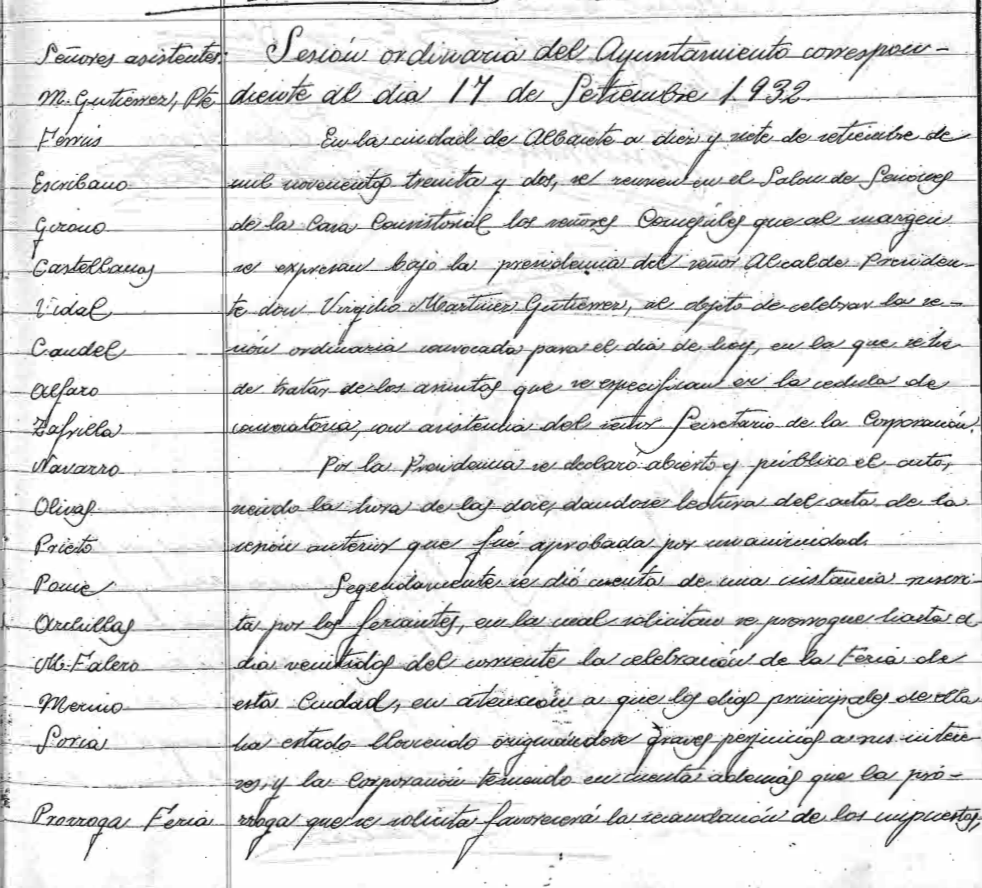 Señores asistentes:
M. Gutierrez, Pte
Ferrus
Escribano
Girono
Castellanos
Vidal
Candel
Alfaro
Zafrilla
Navarro
Olivas
Prieto
Ponce
Archillas
M. Falero
Merino
Soria
Prorroga Feria
Sesión ordinaria del Ayuntamiento correspon-
diente al dia 17 de Setiembre 1932
En la ciudad de Albacete a diez y siete de setiembre de
mil novecientos treinta y dos, se reunen en el Salon de Sesiones
de la Casa Consistorial los señores Concejales que al margen
se expresan bajo la presidencia del señor Alcalde Presiden-
te don Virgilio Martinez Gutierrez, al objeto de celebrar la se-
sión ordinaria convocada para el dia de hoy, en la que se ha
de tratar de los asuntos que se especifican en la cedula de
convocatoria, con asistencia del señor Secretario de la Corporación.
Por la Presidencia se declaró abierto y público el acto,
siendo la hora de las doce, dandose lectura del acta de la
sesión anterior que fué aprobada por unanimidad.
Segundamente se dió cuenta de una instancia suscri-
ta por los feriantes, en la cual solicitan se prorrogue hasta el
dia veintidos del corriente la celebración de la Feria de
esta Ciudad, en atención a que los dias principales de ella
ha estado lloviendo originandose graves perjuicios a sus intere-
ses, y la Corporación teniendo en cuenta además que la pró-
rroga que se solicita favorecerá la recaudación de los impuestos,